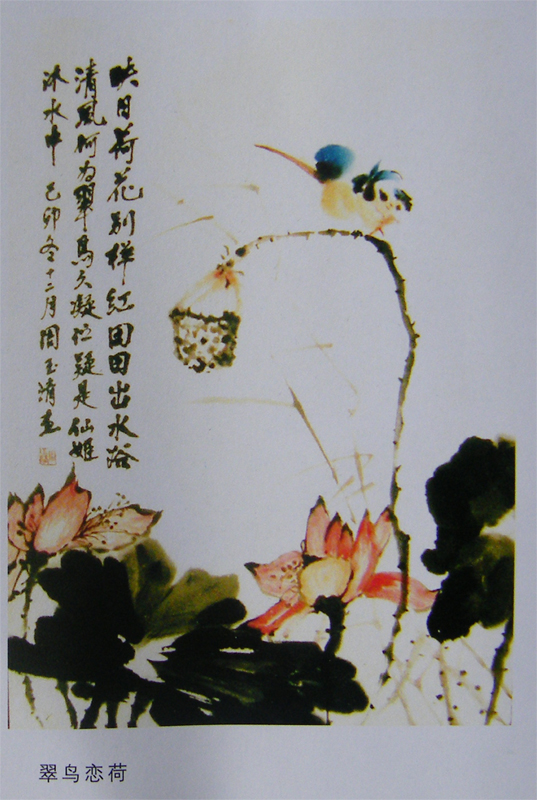 映日荷花别样红田田出水浴
清风何为翠鸟久凝伫疑是仙姬
沐水中 己卯冬十二月周玉清画
翠鸟恋荷